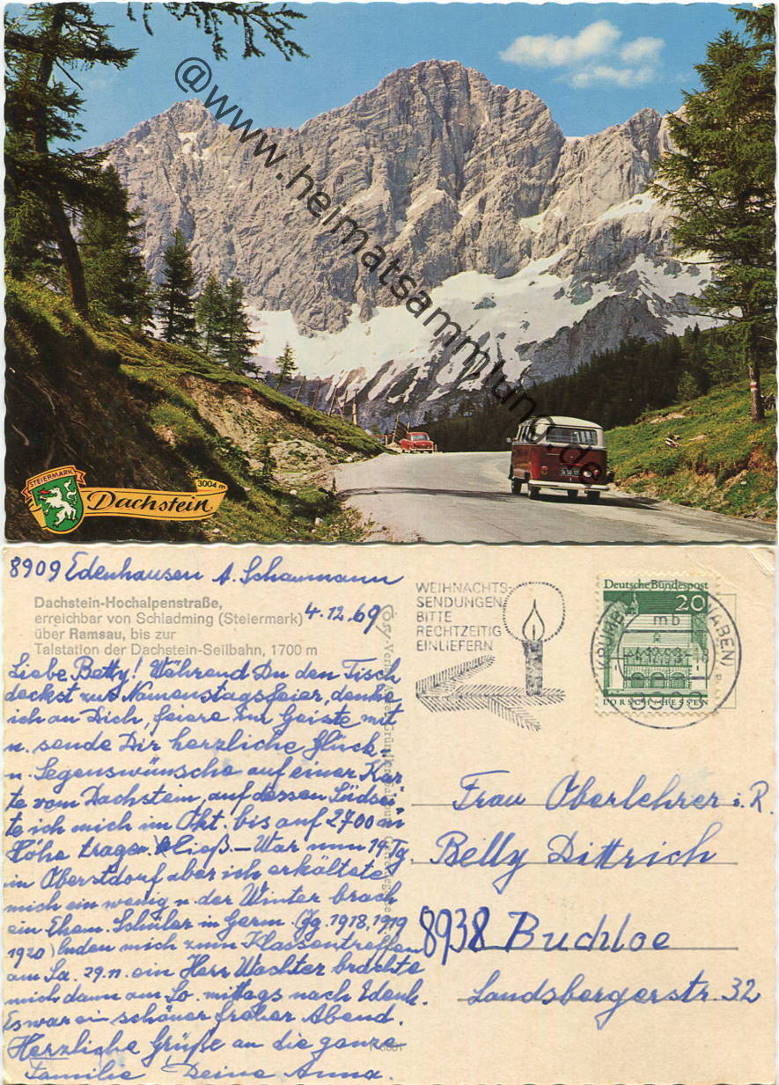 @www.heimatsammlung.de
STEIERMARK
3004 m
Dachstein
8909 Edenhausen A. Schaumann
Dachstein-Hochalpenstraße,
erreichbar von Schladming (Steiermark)
4.12.69
über Ramsau, bis zur
Talstation der Dachstein-Seilbahn, 1700 m
Liebe Betty! Während Du den Tisch
deckst zur Namenstagsfeier, denke
ich an Dich, feiere im Geiste mit
u. sende Dir herzliche Glück-
u. Segenswünsche auf einer Kar
te vom Dachstein, auf dessen Südsei
te ich mich im Okt. bis auf 2700 m
Höhe tragen ließ. — War nun 14 Tg.
in Oberstdorf aber ich erkältete
mich ein wenig u. der Winter brach
ein Ehem. Schüler in Germ. (Jg. 1918, 1919
1920) luden mich zum Klassentreffen
am Sa. 29.11. ein Herr Wachter brachte
mich dann am So. mittags nach Edenh.
Es war ein schöner froher Abend.
Herzliche Grüße an die ganze
Familie Deine Anna.
WEIHNACHTS-
SENDUNGEN
BITTE
RECHTZEITIG
EINLIEFERN
Deutsche Bundespost
20
mb
LORSCH/HESSEN
Frau Oberlehrer i. R.
Betty Dittrich
8938 Buchloe
Landsbergerstr. 32